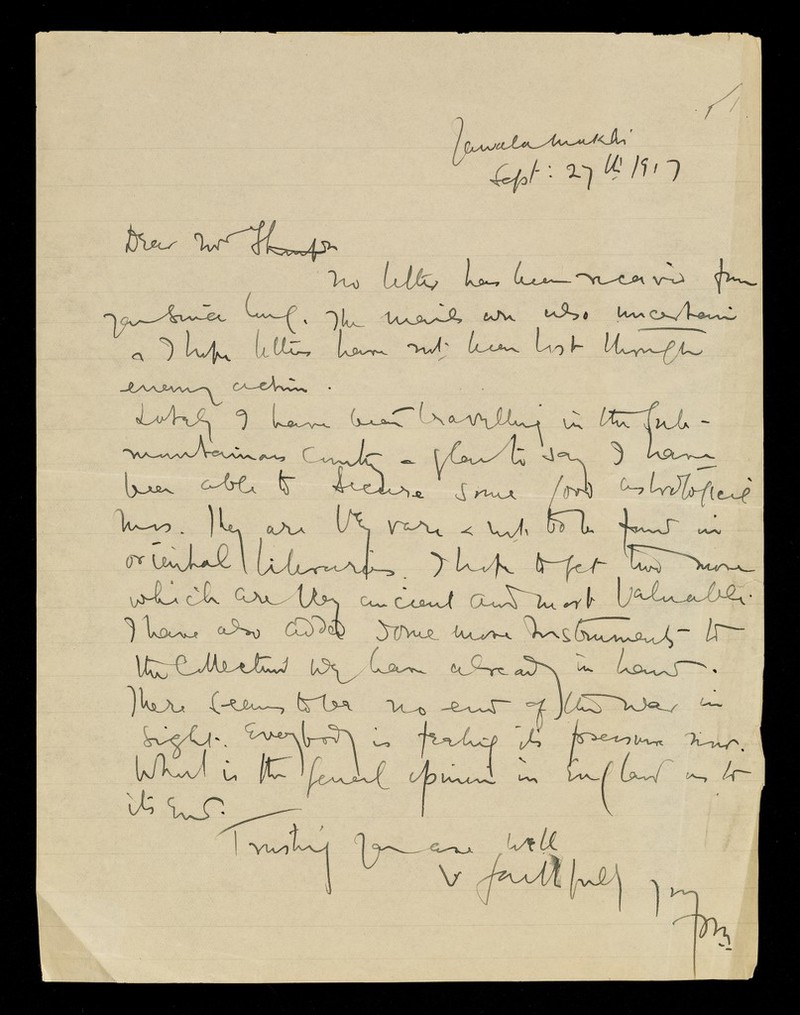 Jawalamukhi
Sept: 27th 1917
Dear Mr Thompson
No letter has been received from
you since long. The mails are also uncertain
& I hope letters have not been lost through
enemy action.
Lately I have been travelling in the sub-
mountainous country & glad to say I have
been able to secure some good astrological
mss. They are very rare & not to be found in
oriental libraries. I hope to get two more
which are very ancient and most valuable.
I have also added some more instruments to
the collection we have already in hand.
There seems to be no end of the war in
sight. Everybody is feeling its pressure now.
What is the general opinion in England as to
its end.
Trusting you are well
& faithfully